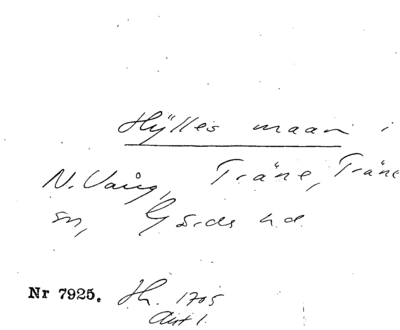 Hÿlles maan i
N. Vång, Träne, Träne
sn, Gärds hd
Nr 7925. Jh. 1705
Akt 1.